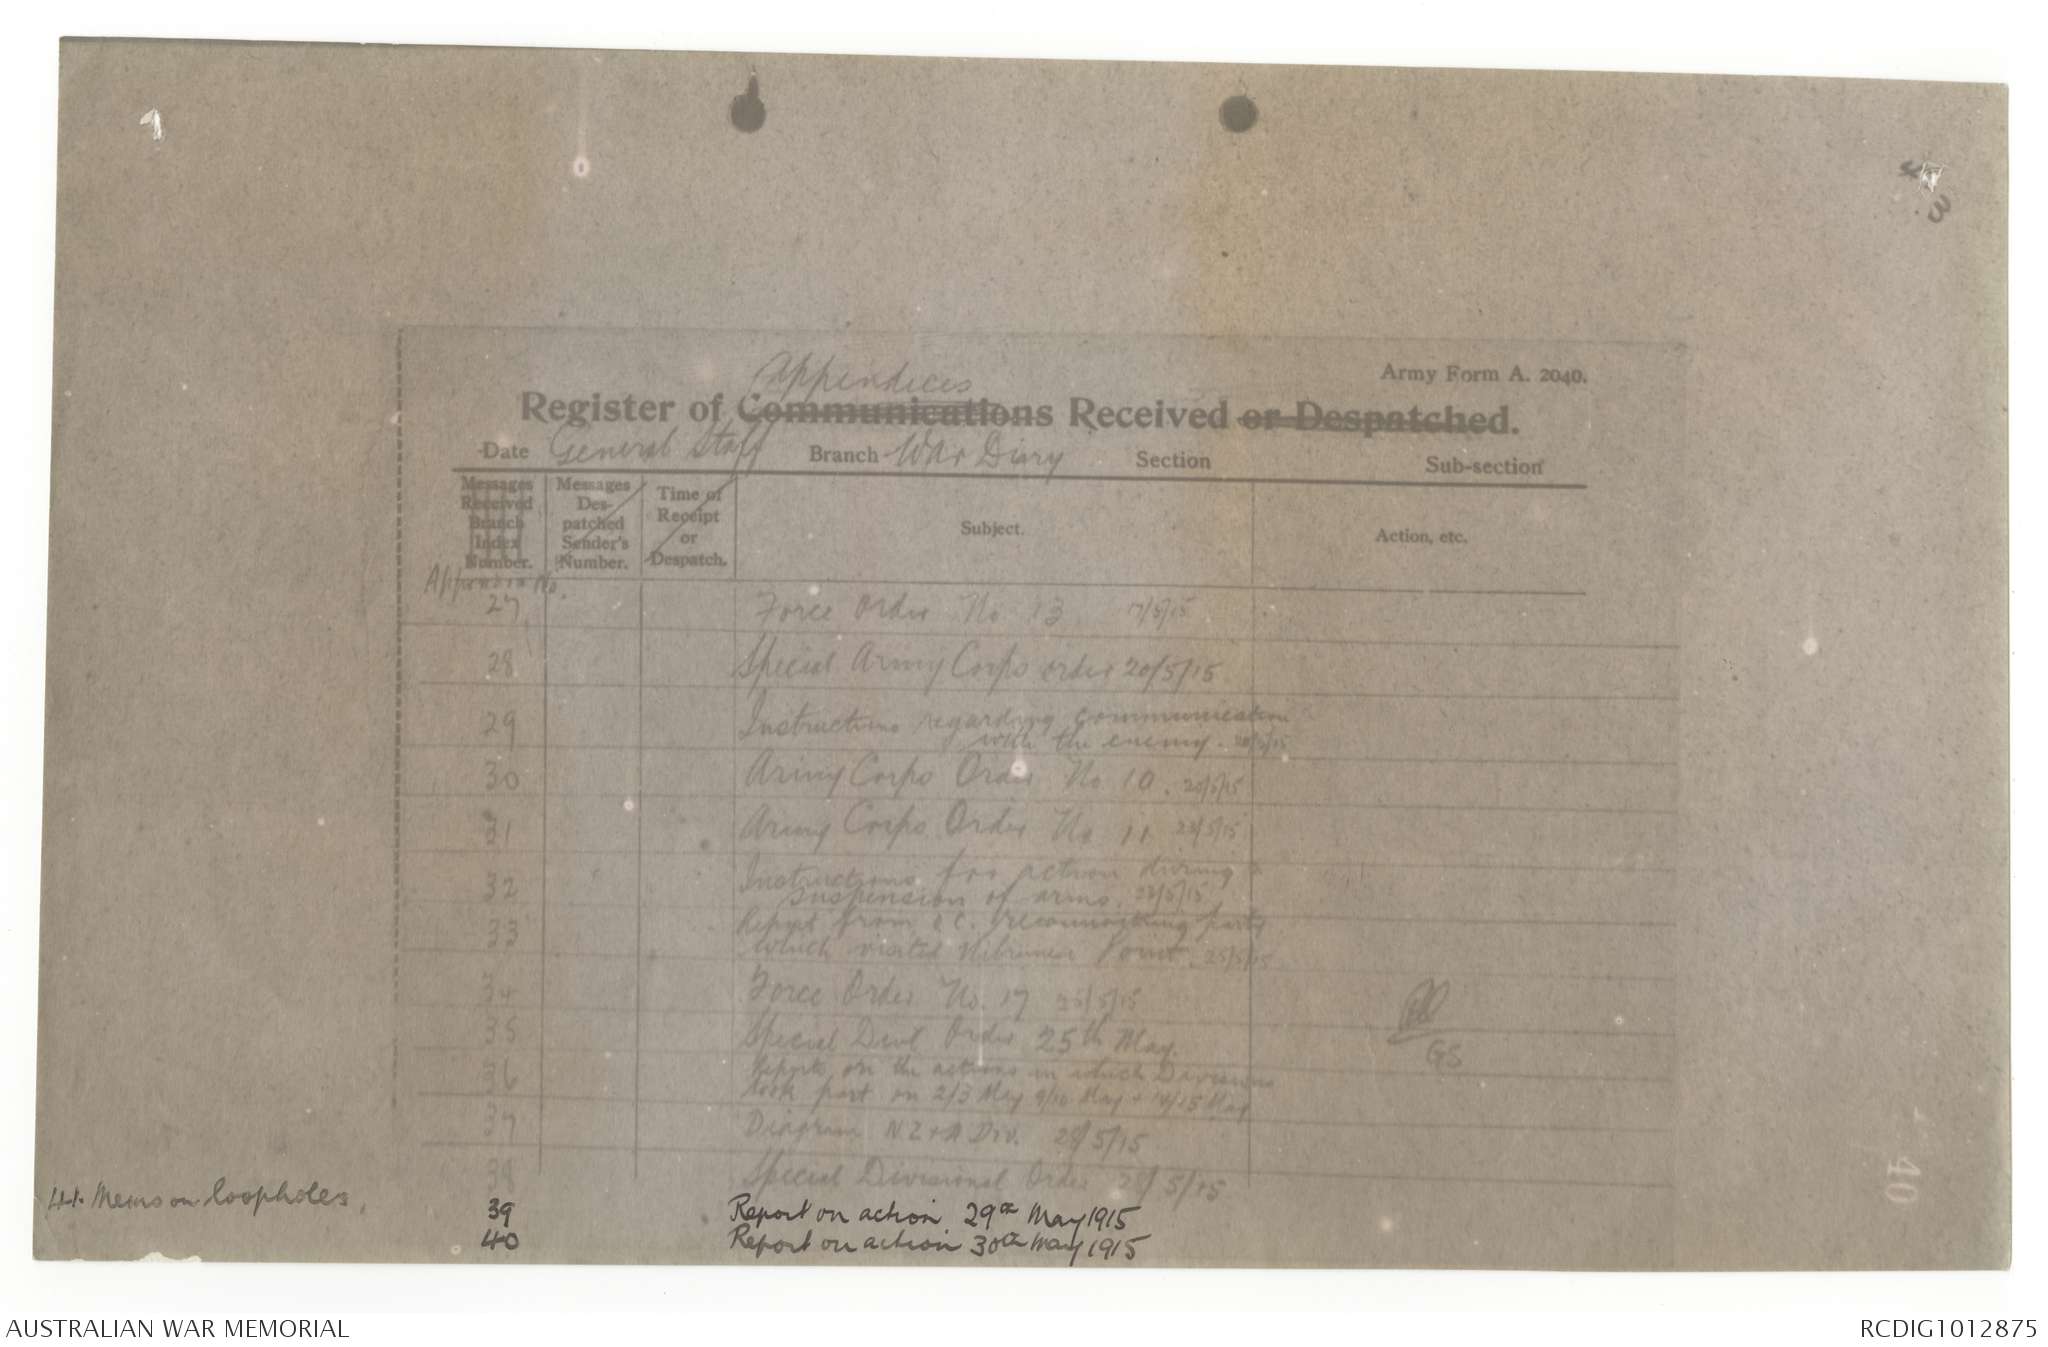 4
3
Army Form A. 2040.
Appendices
Register of Communications Received or Despatched.
Date General Staff Branch War Diary Section Sub-section
Messages Received Branch Index Number.
Messages Des-patched Sender's Number.
Time of Receipt or Despatch.
Subject.
Action, etc.
Appendix No.
27 Force Order No 13 17/5/15
28 Special Army Corps order 20/5/15
29 Instructions regarding communication
with the enemy. 20/5/15
30 Army Corps Order No 10. 20/5/15
31 Army Corps Order No 11 23/5/15
32 Instructions for action during
suspension of arms. 23/5/15
33 Report from O.C. reconnoitring party
which visited Nibrunesi Point. 25/5/15
34 Force Order No. 17 25/5/15
35 Special Divl Order 25th May.
GS
36 Reports on the actions in which Divisions
took part on 2/3 May 9/10 May + 14/15 May
37 Diagram NZ+A Div. 28/5/15
38 Special Divisional Order 28/5/15
41. Memo on loopholes.
39 Report on action 29th May 1915
40 Report on action 30th May 1915
40
AUSTRALIAN WAR MEMORIAL
RCDIG1012875